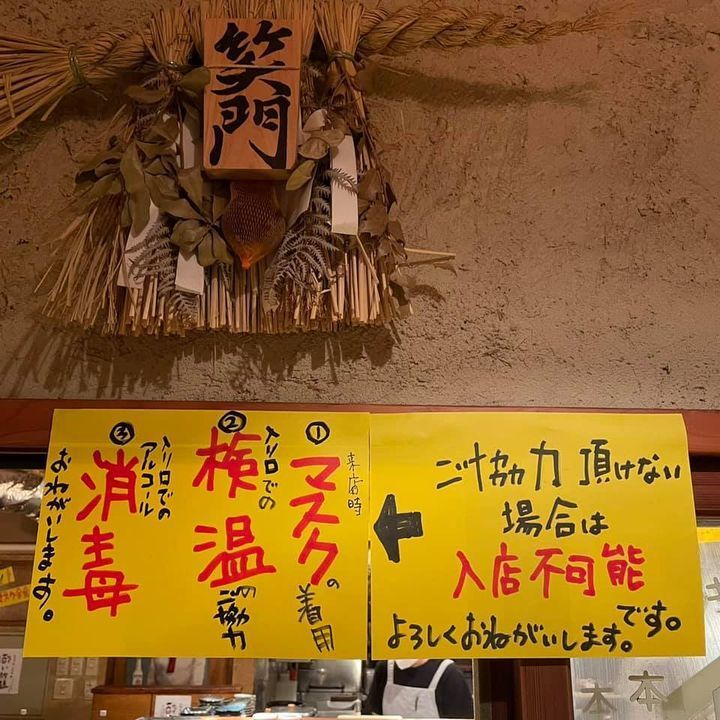 笑門
来店時
①マスクの着用
②入り口での
検温のご協力
③入り口での
アルコール
消毒
おねがいします。
ご協力頂けない
場合は
入店不可能
です。
よろしくおねがいします。
本